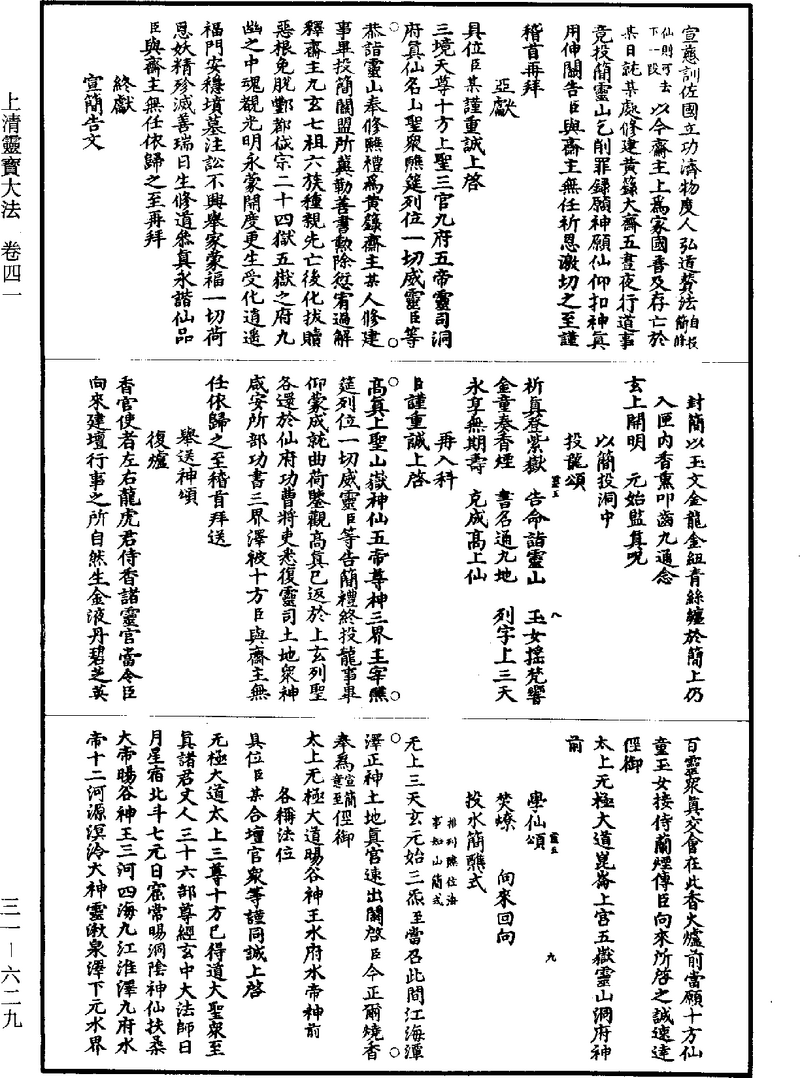 宣慈訓佐國立功濟物度人弘道葬法自投簡除
仙則可去下一段以今齋主上為家國普及存亡於
某日就某處修建黃籙大齋五晝夜行道事
竟投簡靈山乞削罪錄願神願仙仰扣神真
用伸關告臣與齋主無任祈恩激切之至謹
稽首再拜
亞獻
具位臣某謹重誠上啓
三境天尊十方上聖三官九府五帝靈司洞
府真仙名山聖衆醮筵列位一切威靈臣等
恭詣靈山奉修醮禮為黃籙齋主某人修建
事畢投簡關盟所冀勒善書勳除愆宥過解
釋齋主九玄七祖六族種親先亡後化拔贖
惡根免脫酆都岱宗二十四獄五嶽之府九
幽之中魂覩光明永蒙開度更生受化逍遙
福門安穩墳墓注訟不興舉家蒙福一切荷
恩妖精殄滅善瑞日生修道叅真永諧仙品
臣與齋主無任依歸之至再拜
終獻
宣簡告文
封簡以玉文金龍金紐青絲纏於簡上仍
入匣內香熏叩齒九通念
玄上開明　元始監真呪
以簡投洞中
投龍頌
祈真登紫嶽　告命詣靈山　玉女搖梵響
金童奏香煙　書名通九地　列字上三天
永享無期壽　克成高上仙
再入科
臣謹重誠上啓
高真上聖山嶽神仙五帝尊神三界主宰醮
筵列位一切威靈臣等告簡禮終投龍事畢
仰蒙成就曲荷鑒觀高真已返於上玄列聖
各還於仙府功曹將吏悉復靈司土地衆神
咸安所部功書三界澤被十方臣與齋主無
任依歸之至稽首拜送
舉送神頌
復爐
香官使者左右龍虎君侍香諸靈官當令臣
向來建壇行事之所自然生金液丹碧芝英
百靈衆真交會在此香火爐前當願十方仙
童玉女接侍蘭煙傳臣向來所啓之誠速達
徑御
太上无極大道崑崙上宮五嶽靈山洞府神
前
學仙頌
焚燎　向來回向
投水簡醮式
排列醮位法事如山簡式
无上三天玄元始三炁至當召此間江海潭
澤正神土地真官速出關啓臣今正爾燒香
奉為宣簡意至徑御
太上无極大道暘谷神王水府水帝神前
各稱法位
具位臣某合壇官衆等謹同誠上啓
无極大道太上三尊十方已得道大聖衆至
真諸君丈人三十六部尊經玄中大法師日
月星宿北斗七元日窟常暘洞陰神仙扶桑
大帝暘谷神王三河四海九江淮澤九府水
帝十二河源溟泠大神靈湫泉澤下元水界
上清靈寶大法　卷四一
三一－六二九